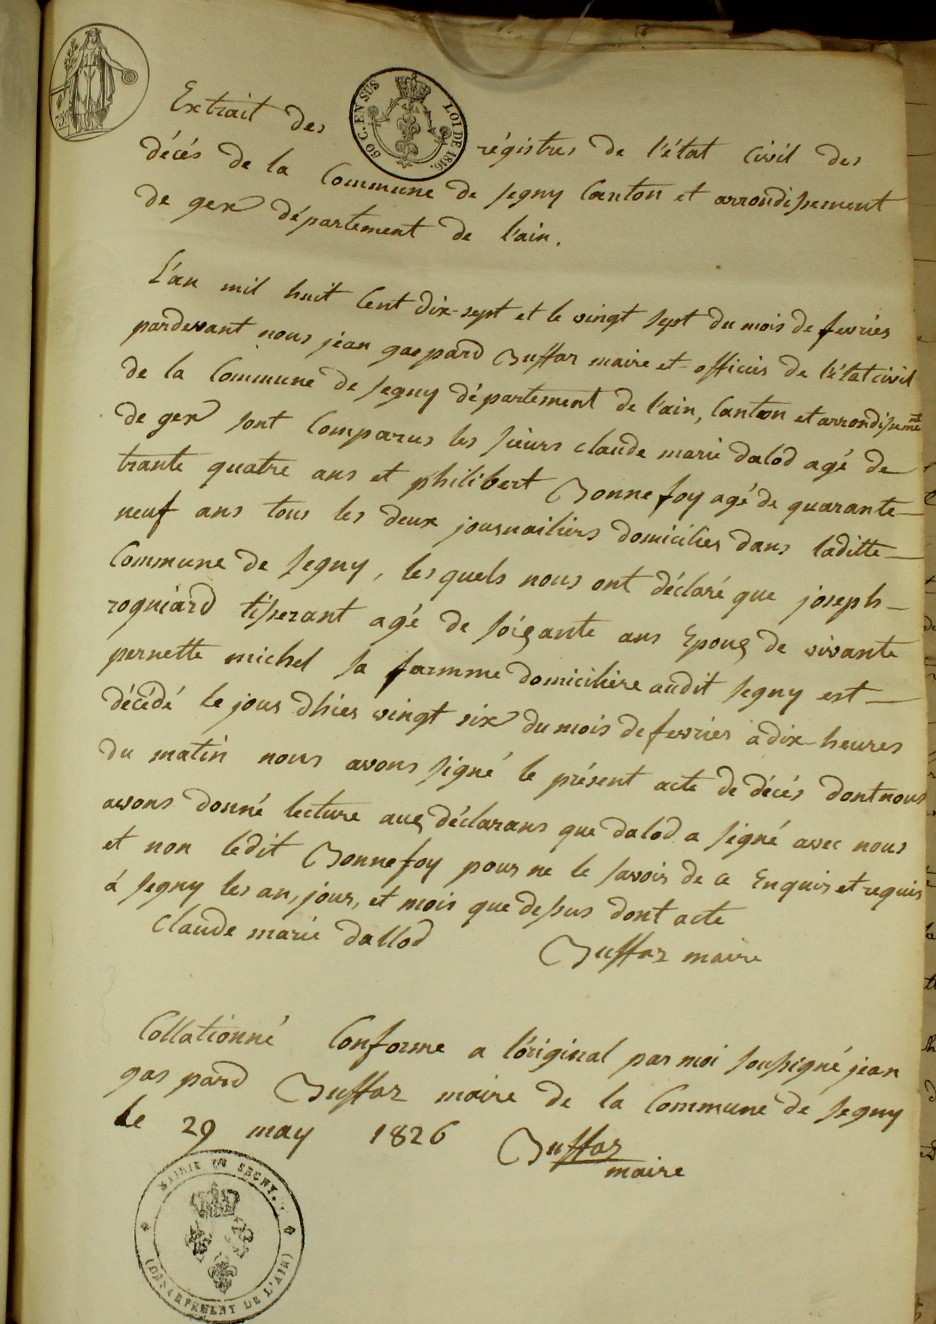 80 C. EN SUS
LOI DE 1816.
Extrait des régistres de l'état civil des
décés de la Commune de Segny Canton et arrondissement
de gex département de l'ain.
L'an mil huit Cent dix-sept et le vingt sept du mois de fevrier
pardevant nous jean gaspard Buffaz maire et officier de l'état civil
de la Commune de Segny département de l'ain, Canton et arrondissemnt
de gex sont Comparus les sieurs claude marie dalod agé de
trante quatre ans et philibert Bonnefoy agé de quarante
neuf ans tous les deux journailiers domiciliés dans laditte
Commune de Segny, lesquels nous ont déclaré que joseph
rogniard tisserant agé de soixante ans Epoux de vivante
pernette michel sa famme domiciliére audit Segny est
décédé le jour d'hier vingt six du mois de fevrier à dix heures
du matin nous avons signé le présent acte de décés dont nous
avons donné lecture aux déclarans que dalod a signé avec nous
et non ledit Bonnefoy pour ne le savoir de ce Enquis et requis
á Segny les an, jour, et mois que dessus dont acte
Claude marie dallod Buffaz maire
Collationné Conforme a l'original par moi soussigné jean
gaspard Buffaz maire de la Commune de Segny
le 29 may 1826 Buffaz
maire
MAIRIE DE SEGNY.
(DÉPARTEMENT DE L'AIN)